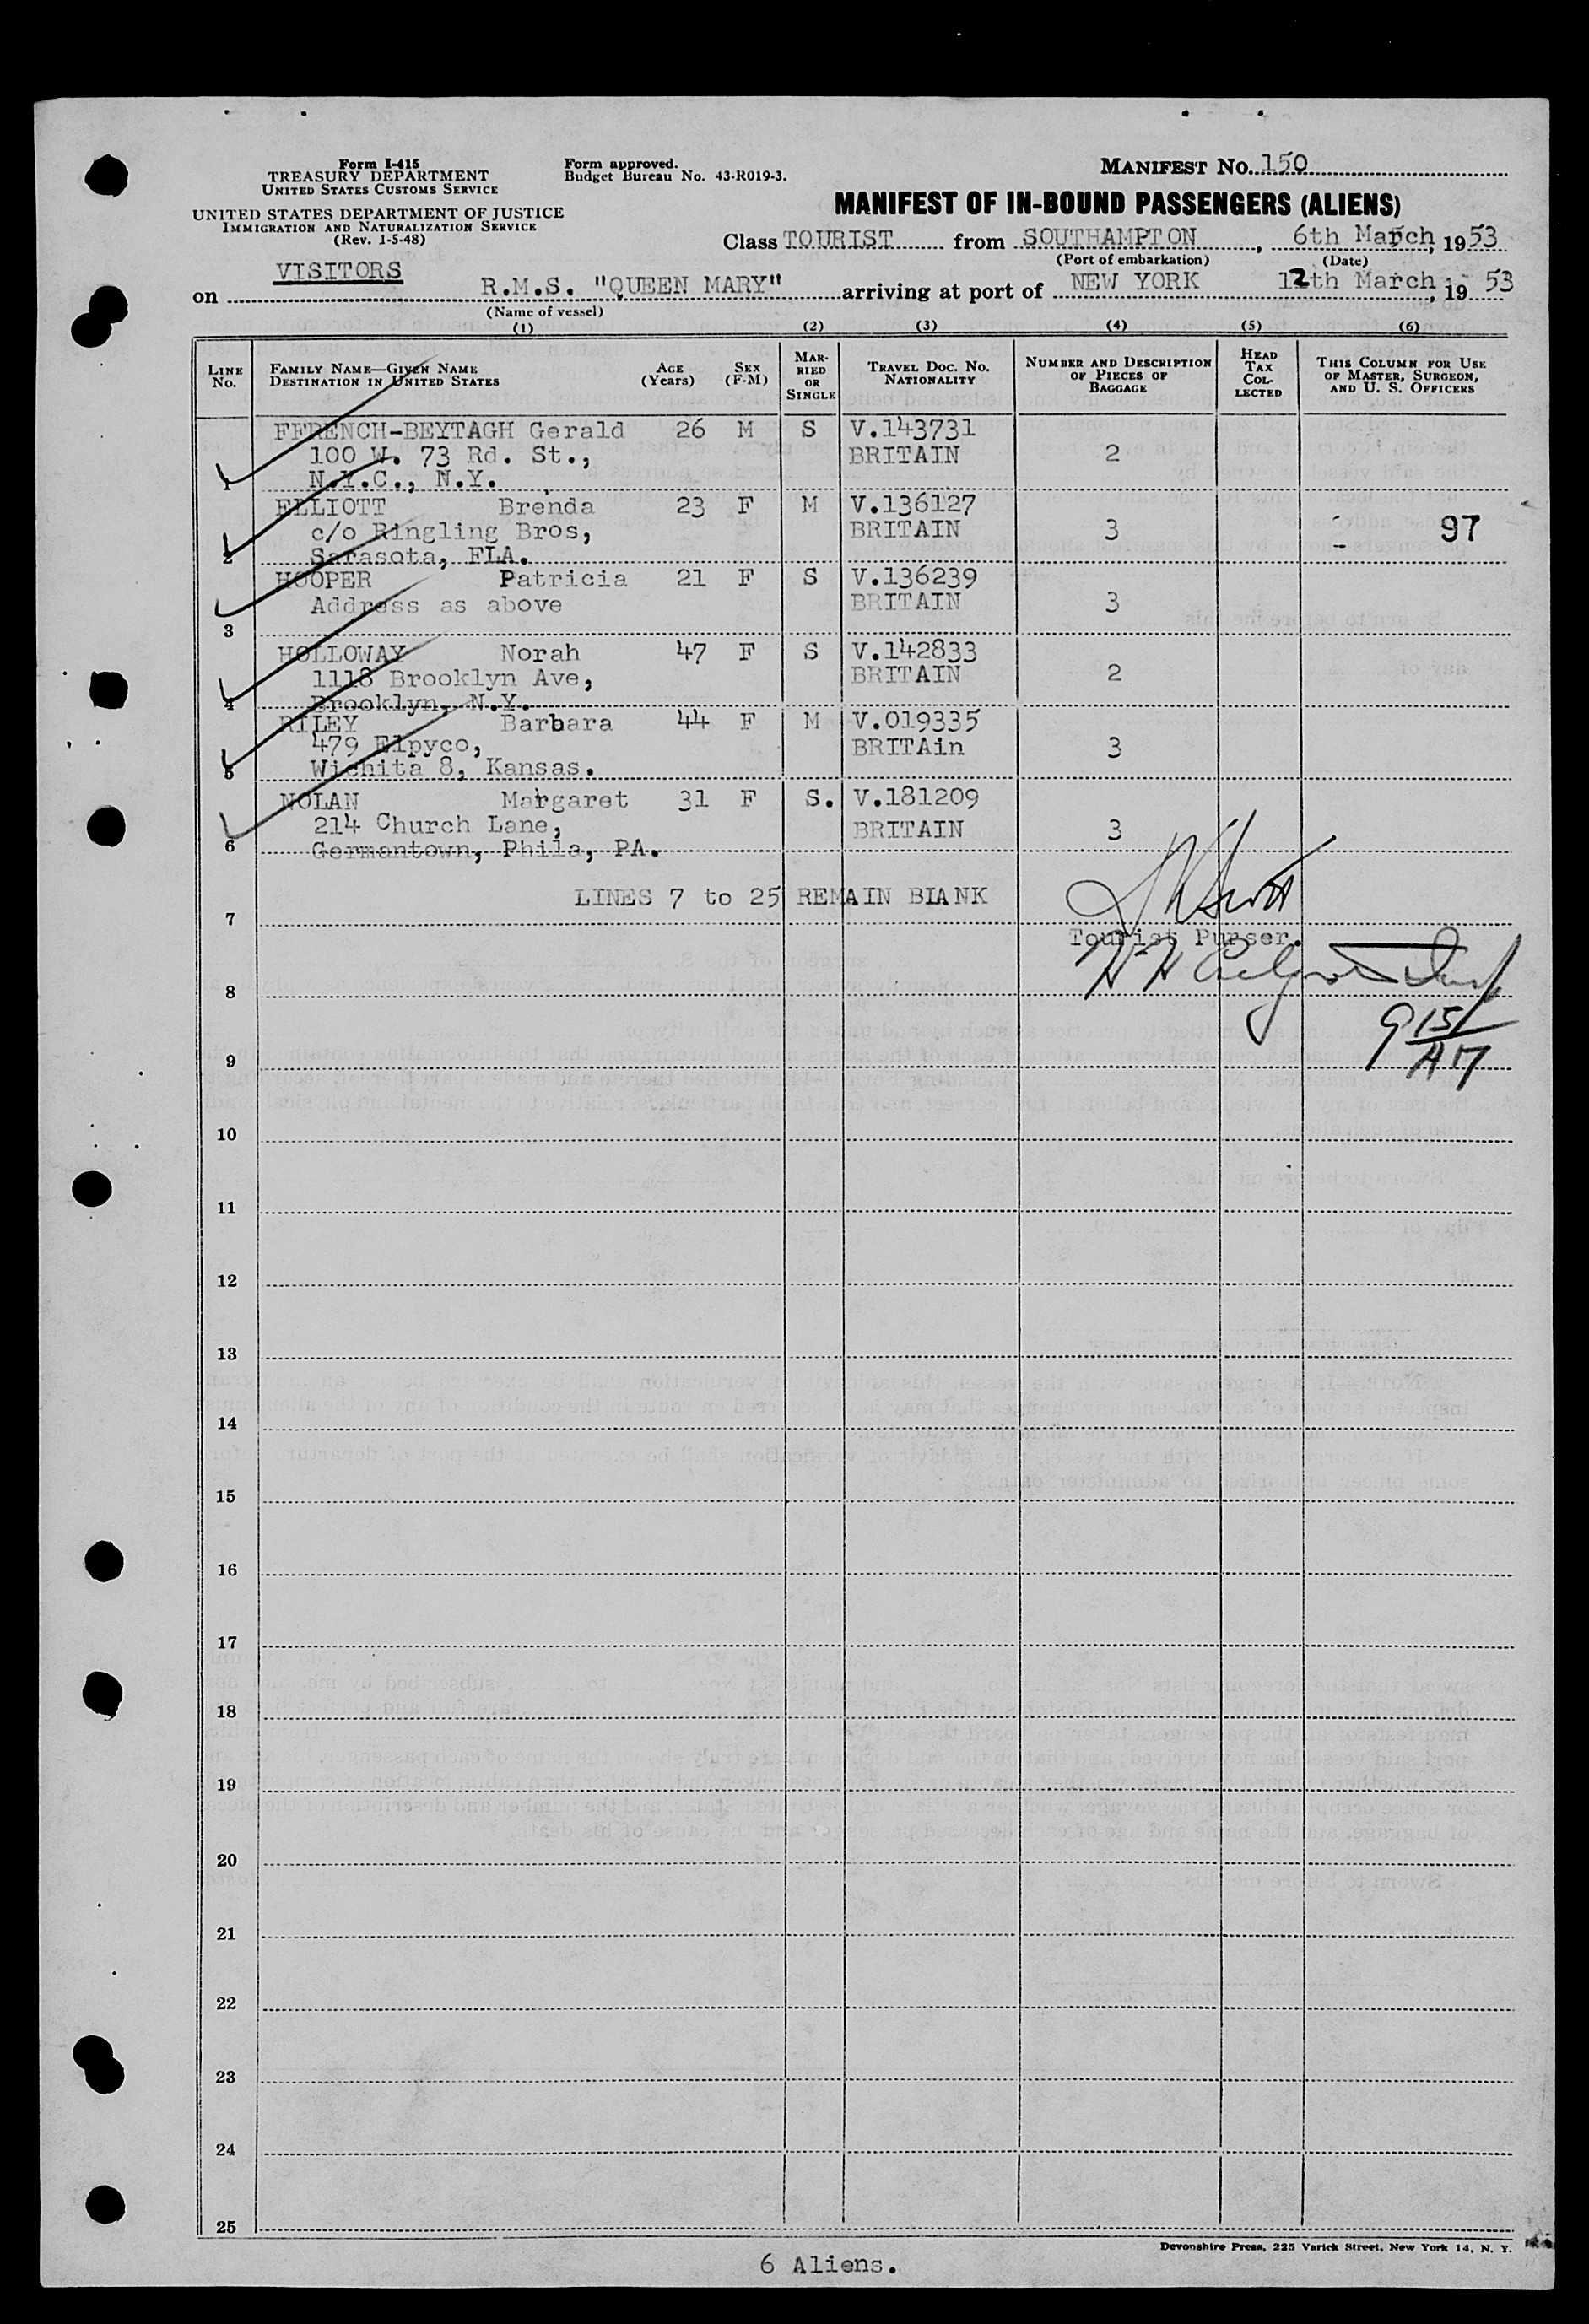 Form I-415
TREASURY DEPARTMENT
UNITED STATES CUSTOMS SERVICE
UNITED STATES DEPARTMENT OF JUSTICE
IMMIGRATION AND NATURALIZATION SERVICE
(Rev. 1-5-48)
Form approved.
Budget Bureau No. 43-R019-3.
MANIFEST NO. 150
MANIFEST OF IN-BOUND PASSENGERS (ALIENS)
Class TOURIST from SOUTHAMPTON, 6th March, 1953
(Port of embarkation) (Date)
VISITORS
on R.M.S. "QUEEN MARY" arriving at port of NEW YORK 12th March, 1953
(Name of vessel)
(1) (2) (3) (4) (5) (6)
LINE NO. FAMILY NAME—GIVEN NAME DESTINATION IN UNITED STATES AGE (Years) SEX (F-M) MARRIED OR SINGLE TRAVEL DOC. NO. NATIONALITY NUMBER AND DESCRIPTION OF PIECES OF BAGGAGE HEAD TAX COLLECTED THIS COLUMN FOR USE OF MASTER, SURGEON, AND U. S. OFFICERS
FFRENCH-BEYTAGH Gerald 26 M S V.143731
100 W. 73 Rd. St., BRITAIN 2
1 N.Y.C., N.Y.
ELLIOTT Brenda 23 F M V.136127
c/o Ringling Bros, BRITAIN 3 97
2 Sarasota, FLA.
HOOPER Patricia 21 F S V.136239
Address as above BRITAIN 3
3
HOLLOWAY Norah 47 F S V.142833
1118 Brooklyn Ave, BRITAIN 2
4 Brooklyn, N.Y.
RILEY Barbara 44 F M V.019335
479 Elpyco, BRITAin 3
5 Wichita 8, Kansas.
NOLAN Margaret 31 F S. V.181209
214 Church Lane, BRITAIN 3
6 Germantown, Phila, PA.
LINES 7 to 25 REMAIN BLANK
7
Tourist Purser.
8
9 15/
AM
9
10
11
12
13
14
15
16
17
18
19
20
21
22
23
24
25
Devonshire Press, 225 Varick Street, New York 14, N. Y.
6 Aliens.